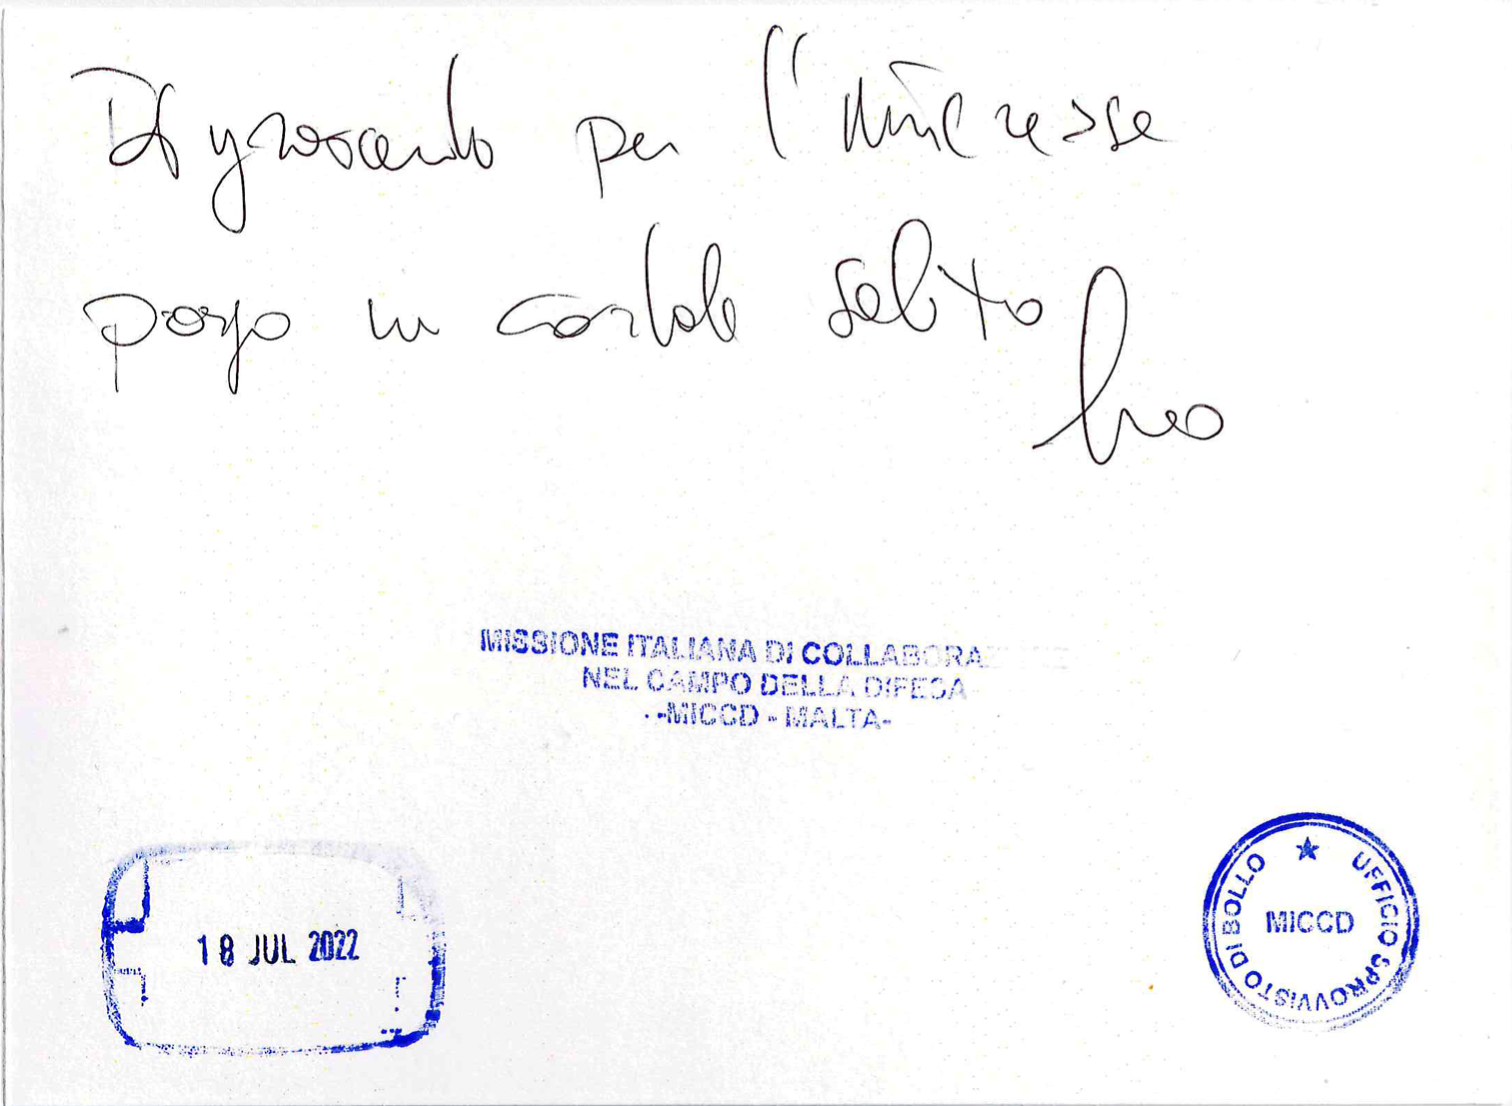 per l'interesse
porgo un cordiale saluto
MISSIONE ITALIANA DI COLLABORAZIONE
NEL CAMPO DELLA DIFESA
-MICCD - MALTA-
18 JUL 2022
UFFICIO SPROVVISTO DI BOLLO
MICCD